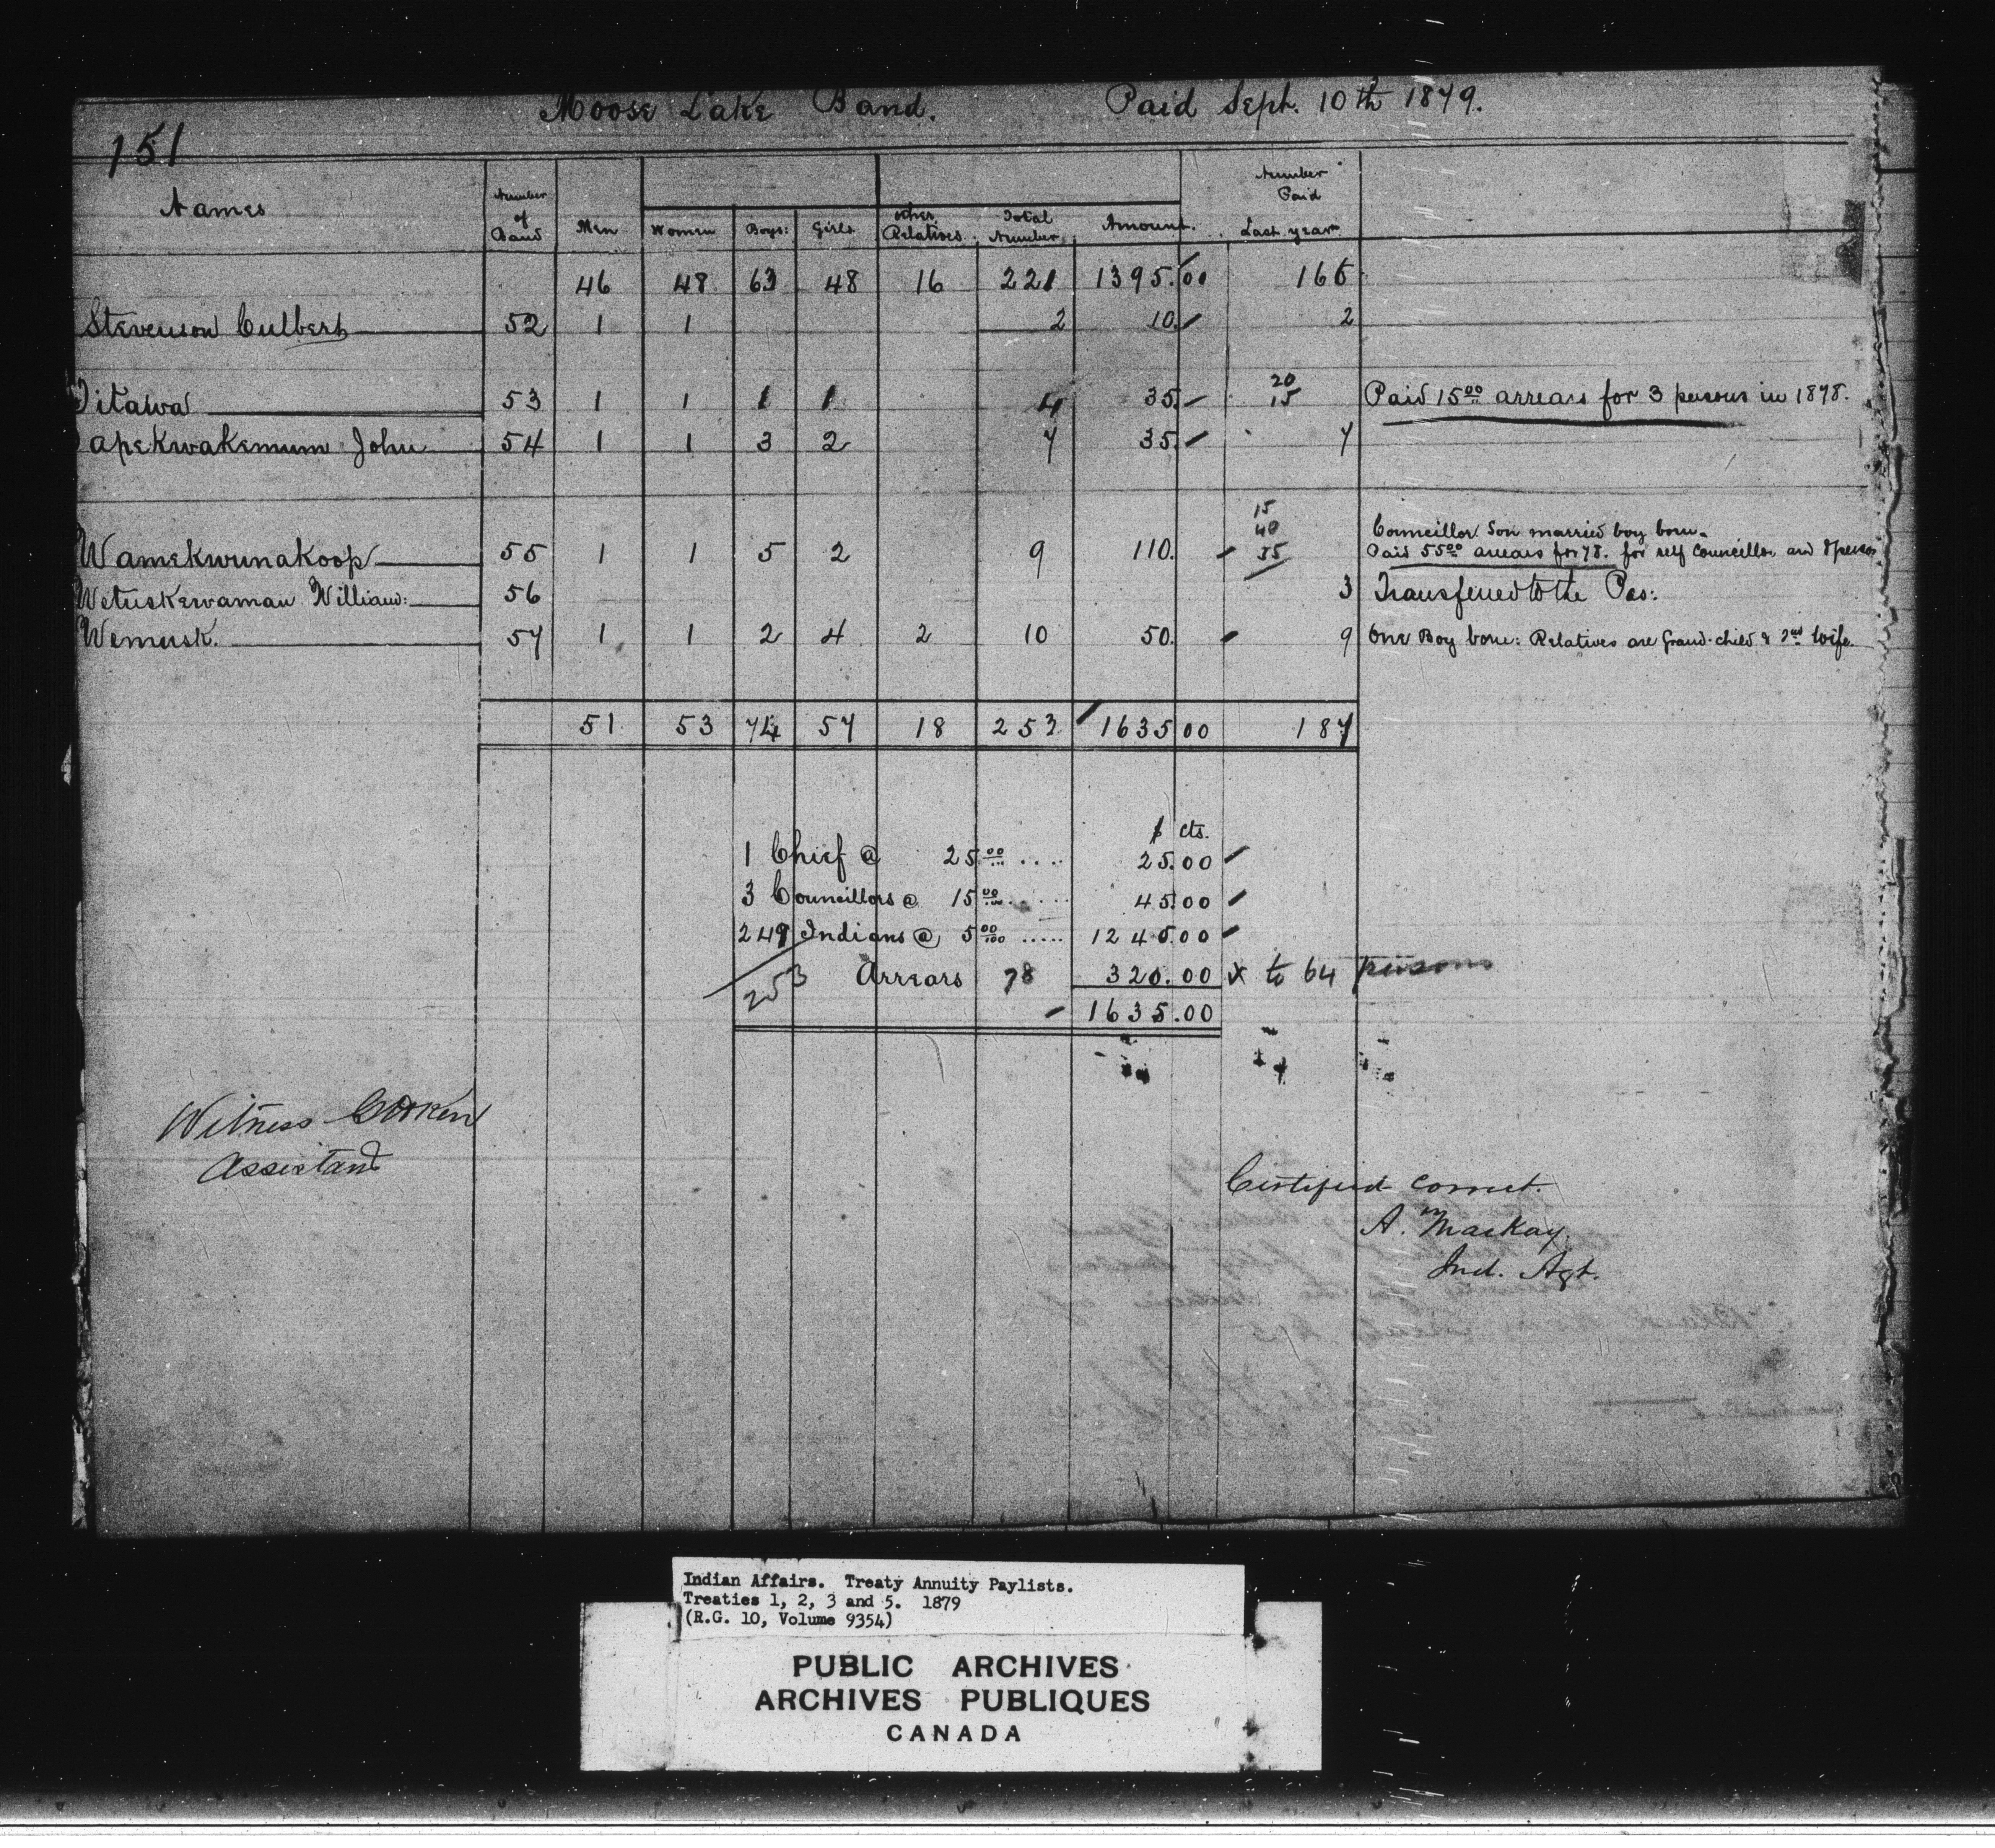 Moose Lake Band. Paid Sept. 10th 1879.
151
Names Number of Band Men Women Boys: Girls other Relatives. Total Number Amount. Number Paid Last year
46 48 63 48 16 221 1395.00 166
Stevenson Culbert 52 1 1 2 10. 2
Titawa 53 1 1 1 1 4 35. 20 15 Paid 15.00 arrears for 3 persons in 1878.
apekwakemum John 54 1 1 3 2 7 35. 7
15
40
Councillor Son married boy born.
Wamekwunakoop 55 1 1 5 2 9 110. 55 Paid 55.00 arrears for 78. for self Councillor and 8 persons
Wetuskewaman William: 56 3 Transferred to the Pas:
Wemusk. 57 1 1 2 4 2 10 50. 9 One Boy born: Relatives are Grand-child & 2nd wife.
51 53 74 57 18 253 1635.00 187
$ cts.
1 Chief @ 25.00 .... 25.00
3 Councillors @ 15.00 ..... 45.00
249 Indians @ 5.00 ..... 1245.00
253 Arrears 78 320.00 x to 64 persons
1635.00
Witness
Assistant
Certified correct.
A. Mackay.
Ind. Agt.
Indian Affairs. Treaty Annuity Paylists.
Treaties 1, 2, 3 and 5. 1879
(R.G. 10, Volume 9354)
PUBLIC ARCHIVES
ARCHIVES PUBLIQUES
CANADA